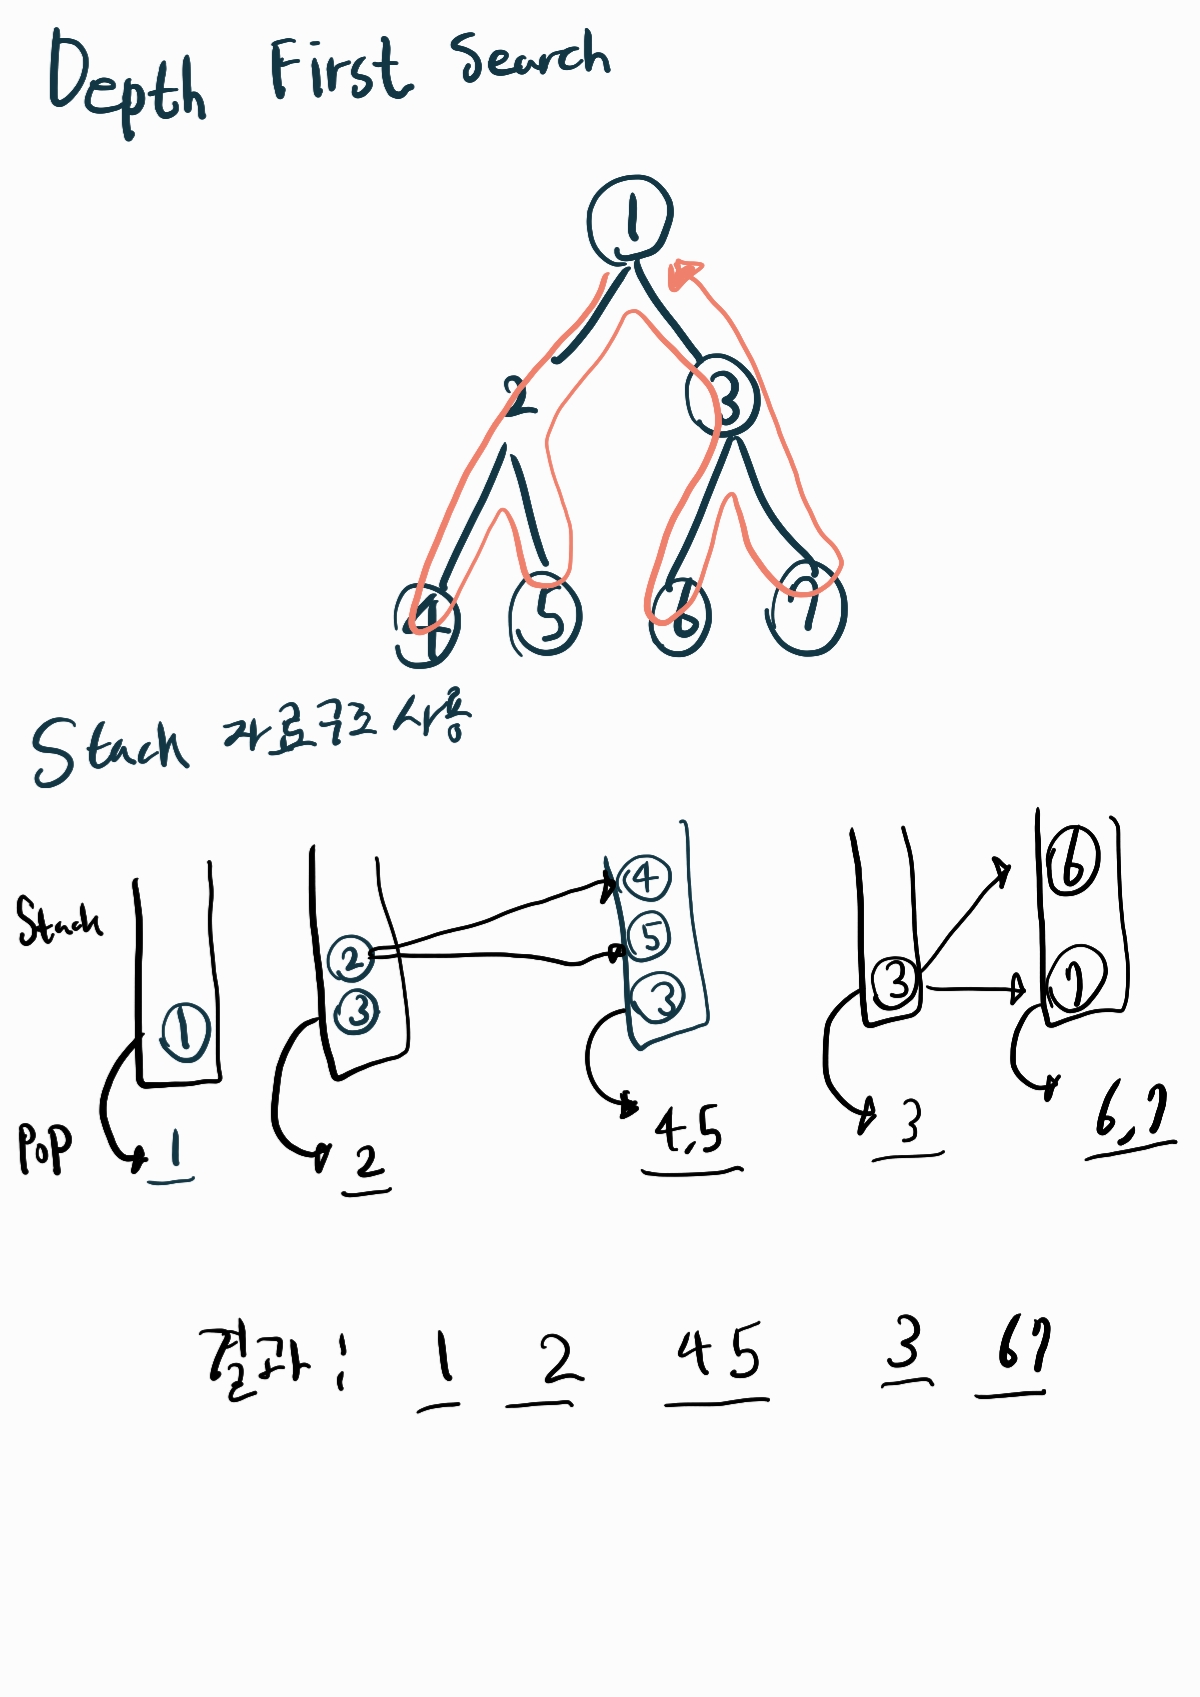 Depth First Search
1
2 3
4 5 6 7
Stack 자료구조 사용
Stack
1
2
3
4
5
3
3
6
7
PoP 1 2 4,5 3 6,7
결과: 1 2 4 5 3 6 7